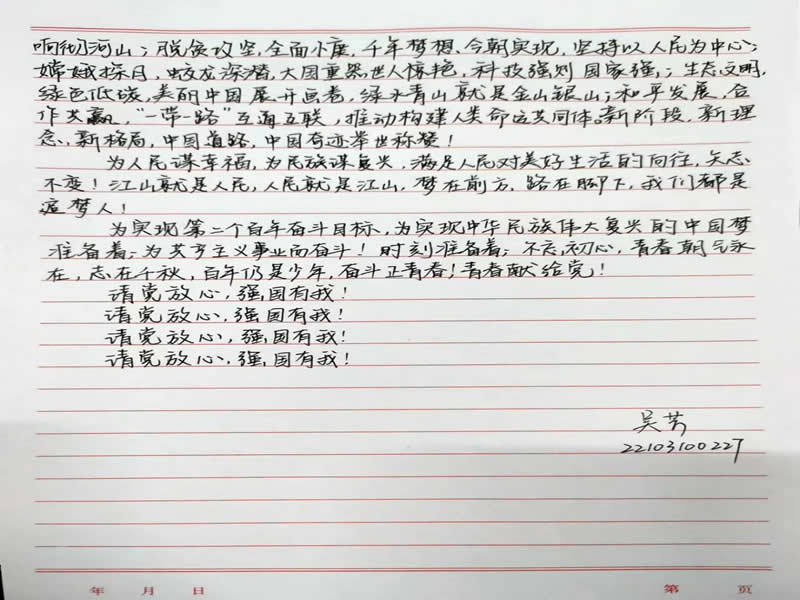 响彻河山；脱贫攻坚，全面小康，千年梦想、今朝实现，坚持以人民为中心；
嫦娥探月，蛟龙深潜，大国重器世人惊艳，科技强则国家强，；生态文明，
绿色低碳，美丽中国展开画卷，绿水青山就是金山银山；和平发展，合
作共赢，“一带一路”互通互联，推动构建人类命运共同体。新阶段，新理
念，新格局，中国道路，中国奇迹举世称赞！
为人民谋幸福，为民族谋复兴，满足人民对美好生活的向往，矢志
不变！江山就是人民，人民就是江山，梦在前方，路在脚下，我们都是
追梦人！
为实现第二个百年奋斗目标，为实现中华民族伟大复兴的中国梦
准备着；为共产主义事业而奋斗！时刻准备着；不忘初心，青春朝气永
在，志在千秋，百年仍是少年，奋斗正青春！青春献给党！
请党放心，强国有我！
请党放心，强国有我！
请党放心，强国有我！
请党放心，强国有我！
吴芳
22103100227
年 月 日 第 页